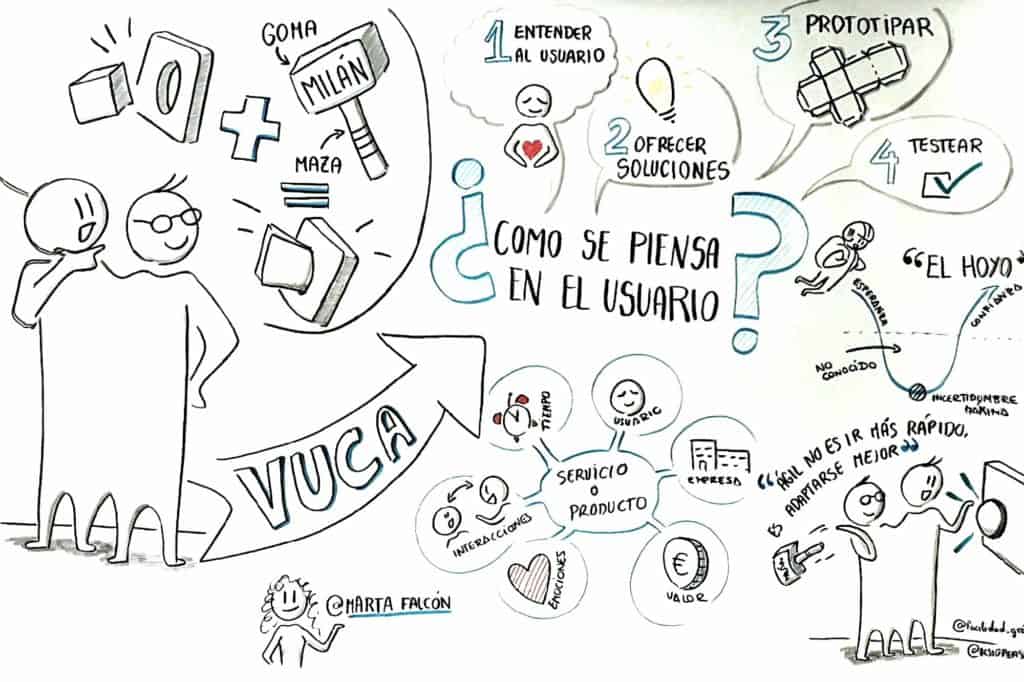 GOMA
MILÁN
MAZA
VUCA
1 ENTENDER
AL USUARIO
2 OFRECER
SOLUCIONES
3 PROTOTIPAR
4 TESTEAR
¿COMO SE PIENSA
EN EL USUARIO?
"EL HOYO"
ESPERANZA
NO
CONOCIDO
CONFIANZA
INCERTIDUMBRE
MÁXIMA
TIEMPO
USUARIO
EMPRESA
SERVICIO
O
PRODUCTO
INTERACCIONES
EMOCIONES
€
VALOR
"ÁGIL NO ES IR MÁS RÁPIDO,
ADAPTARSE MEJOR"
@MARTA FALCÓN